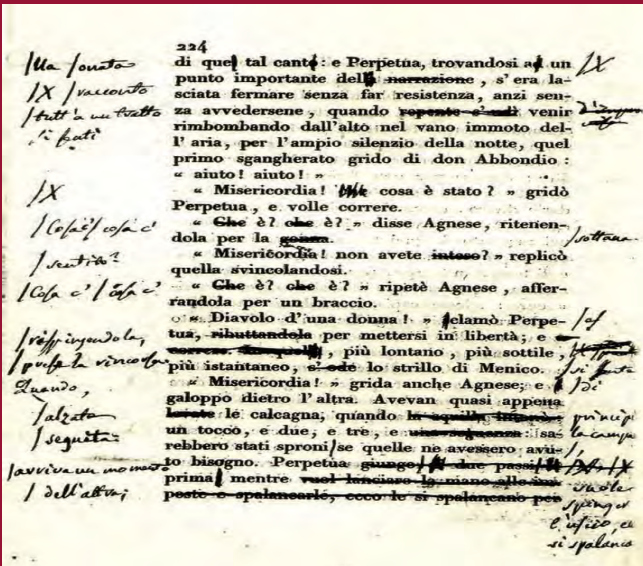 224
di quel tal canto: e Perpetua, trovandosi ad un
punto importante della narrazione, s'era la-
sciata fermare senza far resistenza, anzi sen-
za avvedersene, quando repente s'udì venir
rimbombando dall'alto nel vano immoto del-
l'aria, per l'ampio silenzio della notte, quel
primo sgangherato grido di don Abbondio :
« aiuto! aiuto! »
« Misericordia! cosa è stato? » gridò
Perpetua, e volle correre.
« Che è? che è? » disse Agnese, ritenen-
dola per la gonna.
« Misericordia! non avete inteso? » replicò
quella svincolandosi.
« Che è? che è? » ripetè Agnese, affer-
randola per un braccio.
« Diavolo d'una donna! » sclamò Perpe-
tua, ributtandola per mettersi in libertà; e
correre. , più lontano, più sottile,
più istantaneo, s'ode lo strillo di Menico.
« Misericordia! » grida anche Agnese; e
galoppo dietro l'altra. Avevan quasi appena
levate le calcagna, quando la squilla
un tocco, e due, e tre, e una sequenza: sa-
rebbero stati sproni se quelle ne avessero avu-
to bisogno. Perpetua giunge due passi
prima mentre vuol lanciare la mano alle im-
poste e spalancarle, ecco le si spalancano per
/X /racconto
/tutt'a un tratto
/X
/Cosa c'è/ cosa c'è
/sentito?
/Cosa c'è/ cosa c'è
/respingendola,
Quando,
/alzate
/seguita
/avviva un momento
/dell'altra;
/X
/sottana
/si sente
/di
principi
la campa
vuole
spinger
l'uscio, e
si spalanca